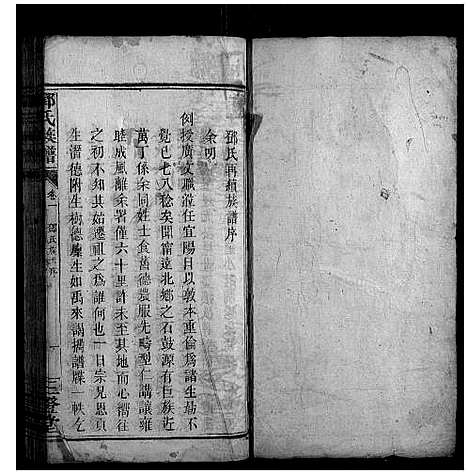 鄧氏再續族譜序
余明
例授廣文職濫任宜陽目以敦本重倫為諸生勗不
覺已七八稔矣聞甯遠北鄉之石鼓源有巨族近
萬丁係余同姓士食舊德農服先疇型仁講讓雍
睦成風離余署僅六十里許未至其地而心嚮往
之初不知其始遷祖之為誰何也一日宗兄恩貢
生溍德附生樹德廩生如禹來謁携譜牒一帙乞
鄧氏族譜
卷一
三登堂